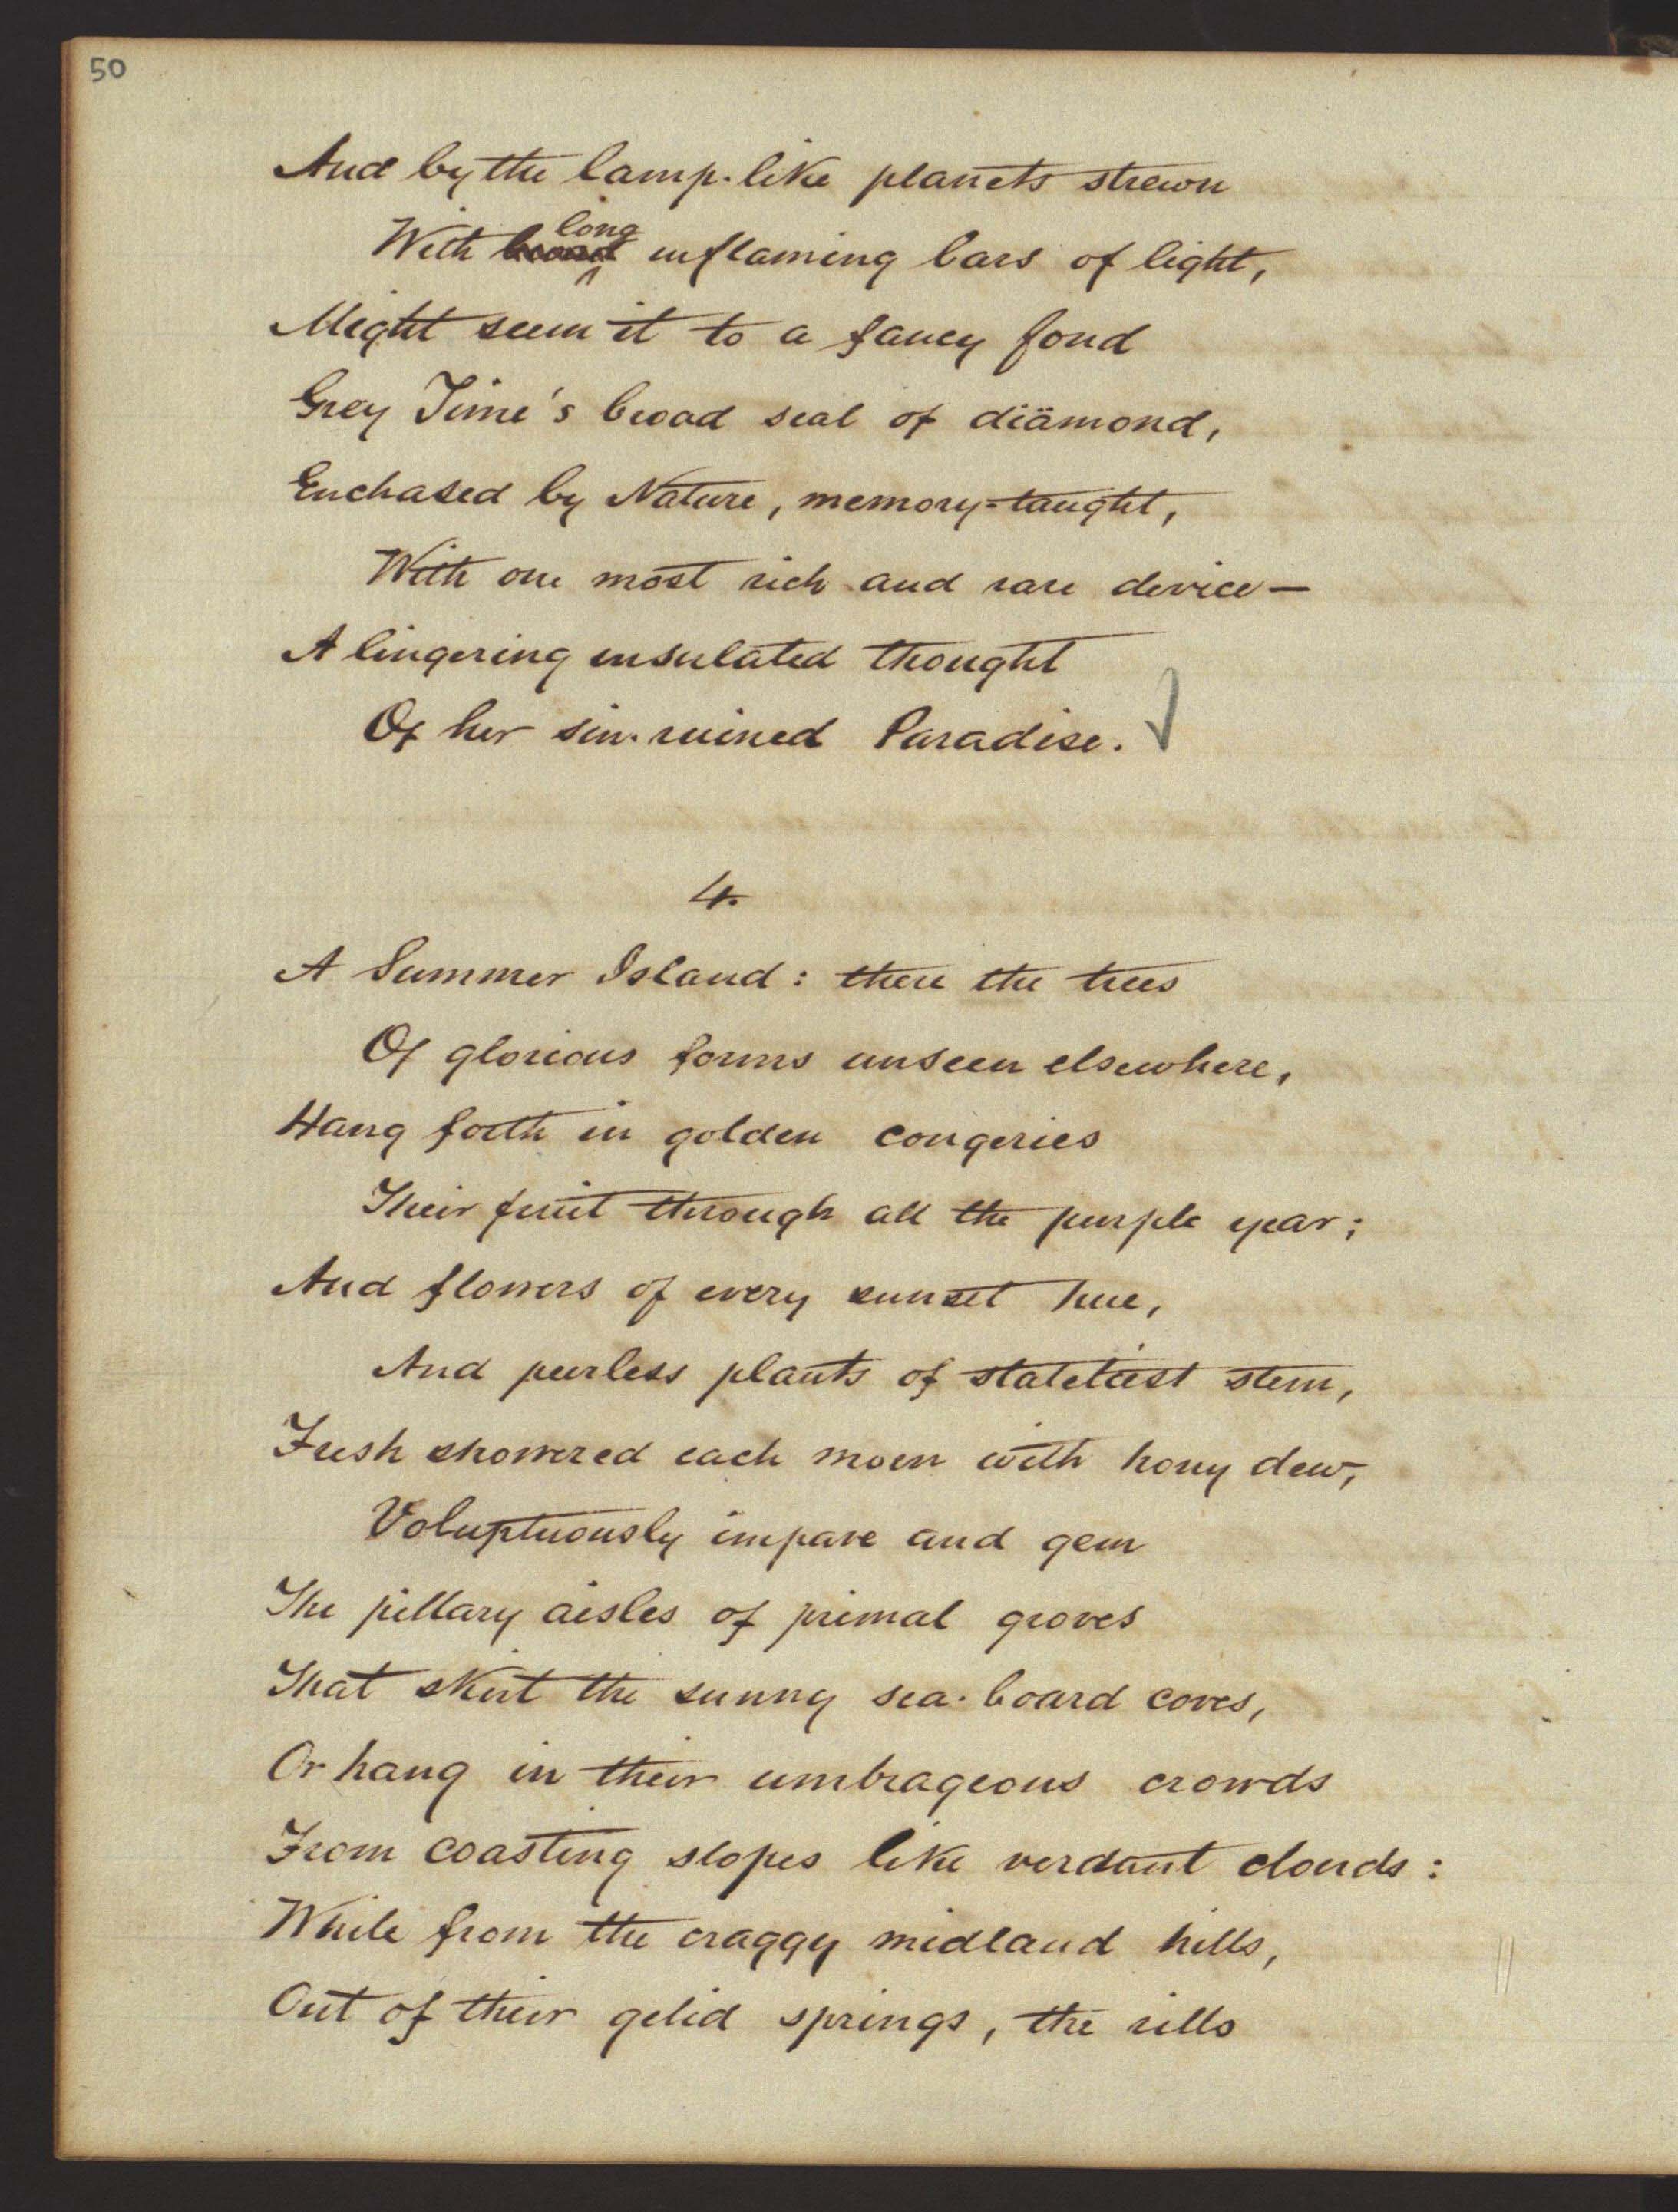 50
And by the lamp-like planets strewn
With broad long inflaming bars of light,
Might seem it to a fancy fond
Grey Time's broad seal of diämond,
Enchased by Nature, memory-taught,
With one most rich and rare device—
A lingering insulated thought
Of her sin-ruined Paradise.
4.
A Summer Island: there the trees
Of glorious forms unseen elsewhere,
Hang forth in golden congeries
Their fruit through all the purple year;
And flowers of every sunset hue,
And peerless plants of stateliest stem,
Fresh showered each morn with hony dew,
Voluptuously impave and gem
The pillary aisles of primal groves
That skirt the sunny sea-board coves,
Or hang in their umbrageous crowds
From coasting slopes like verdant clouds:
While from the craggy midland hills,
Out of their gelid springs, the rills